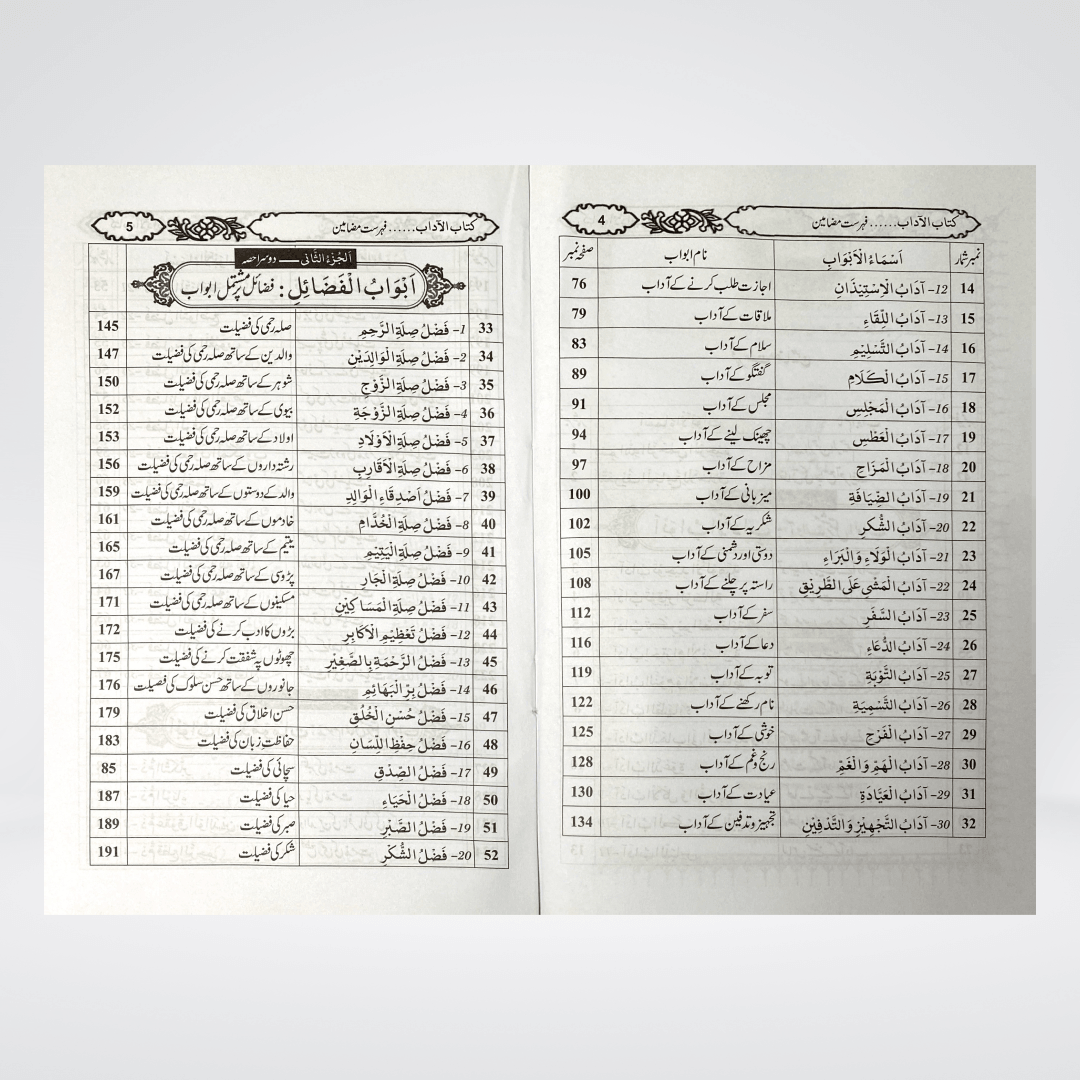 کتاب الآداب......فہرست مضامین 4
نمبر شمار اَسْمَاءُ الْاَبْوَابِ نام ابواب صفحہ نمبر
14 12- آدَابُ الْاِسْتِيْذَانِ اجازت طلب کرنے کے آداب 76
15 13- آدَابُ اللِّقَاءِ ملاقات کے آداب 79
16 14- آدَابُ التَّسْلِيْمِ سلام کے آداب 83
17 15- آدَابُ الْكَلَامِ گفتگو کے آداب 89
18 16- آدَابُ الْمَجْلِسِ مجلس کے آداب 91
19 17- آدَابُ الْعَطْسِ چھینک لینے کے آداب 94
20 18- آدَابُ الْمَزَاحِ مزاح کے آداب 97
21 19- آدَابُ الضِّيَافَةِ میزبانی کے آداب 100
22 20- آدَابُ الشُّكرِ شکریہ کے آداب 102
23 21- آدَابُ الْوَلَاءِ وَالْبَرَاءِ دوستی اور دشمنی کے آداب 105
24 22- آدَابُ الْمَشْيِ عَلَى الطَّرِيْقِ راستہ پر چلنے کے آداب 108
25 23- آدَابُ السَّفَرِ سفر کے آداب 112
26 24- آدَابُ الدُّعَاءِ دعا کے آداب 116
27 25- آدَابُ التَّوْبَةِ توبہ کے آداب 119
28 26- آدَابُ التَّسْمِيَةِ نام رکھنے کے آداب 122
29 27- آدَابُ الْفَرْحِ خوشی کے آداب 125
30 28- آدَابُ الْهَمِّ وَالْغَمِّ رنج و غم کے آداب 128
31 29- آدَابُ الْعَيَادَةِ عیادت کے آداب 130
32 30- آدَابُ التَّجْهِيْزِ وَالتَّدْفِيْنِ تجہیز و تدفین کے آداب 134
کتاب الآداب......فہرست مضامین 5
اَلْجُزْءُ الثَّانِی — دوسرا حصہ
اَبْوَابُ الْفَضَائِلِ: فضائل پر مشتمل ابواب
33 1- فَضْلُ صِلَةِ الرَّحِمِ صلہ رحمی کی فضیلت 145
34 2- فَضْلُ صِلَةِ الْوَالِدَيْنِ والدین کے ساتھ صلہ رحمی کی فضیلت 147
35 3- فَضْلُ صِلَةِ الزَّوْجِ شوہر کے ساتھ صلہ رحمی کی فضیلت 150
36 4- فَضْلُ صِلَةِ الزَّوْجَةِ بیوی کے ساتھ صلہ رحمی کی فضیلت 152
37 5- فَضْلُ صِلَةِ الْاَوْلَادِ اولاد کے ساتھ صلہ رحمی کی فضیلت 153
38 6- فَضْلُ صِلَةِ الْاَقَارِبِ رشتہ داروں کے ساتھ صلہ رحمی کی فضیلت 156
39 7- فَضْلُ اَصْدِقَاءِ الْوَالِدِ والد کے دوستوں کے ساتھ صلہ رحمی کی فضیلت 159
40 8- فَضْلُ صِلَةِ الْخُدَّامِ خادموں کے ساتھ صلہ رحمی کی فضیلت 161
41 9- فَضْلُ صِلَةِ الْيَتِيْمِ یتیم کے ساتھ صلہ رحمی کی فضیلت 165
42 10- فَضْلُ صِلَةِ الْجَارِ پڑوسی کے ساتھ صلہ رحمی کی فضیلت 167
43 11- فَضْلُ صِلَةِ الْمَسَاكِيْنِ مسکینوں کے ساتھ صلہ رحمی کی فضیلت 171
44 12- فَضْلُ تَعْظِيْمِ الْاَكَابِرِ بڑوں کا ادب کرنے کی فضیلت 172
45 13- فَضْلُ الرَّحْمَةِ بِالصَّغِيْرِ چھوٹوں پہ شفقت کرنے کی فضیلت 175
46 14- فَضْلُ بِرِّ الْبَهَائِمِ جانوروں کے ساتھ حسن سلوک کی فضیلت 176
47 15- فَضْلُ حُسْنِ الْخُلُقِ حسن اخلاق کی فضیلت 179
48 16- فَضْلُ حِفْظِ اللِّسَانِ حفاظتِ زبان کی فضیلت 183
49 17- فَضْلُ الصِّدْقِ سچائی کی فضیلت 85
50 18- فَضْلُ الْحَيَاءِ حیا کی فضیلت 187
51 19- فَضْلُ الصَّبْرِ صبر کی فضیلت 189
52 20- فَضْلُ الشُّكْرِ شکر کی فضیلت 191